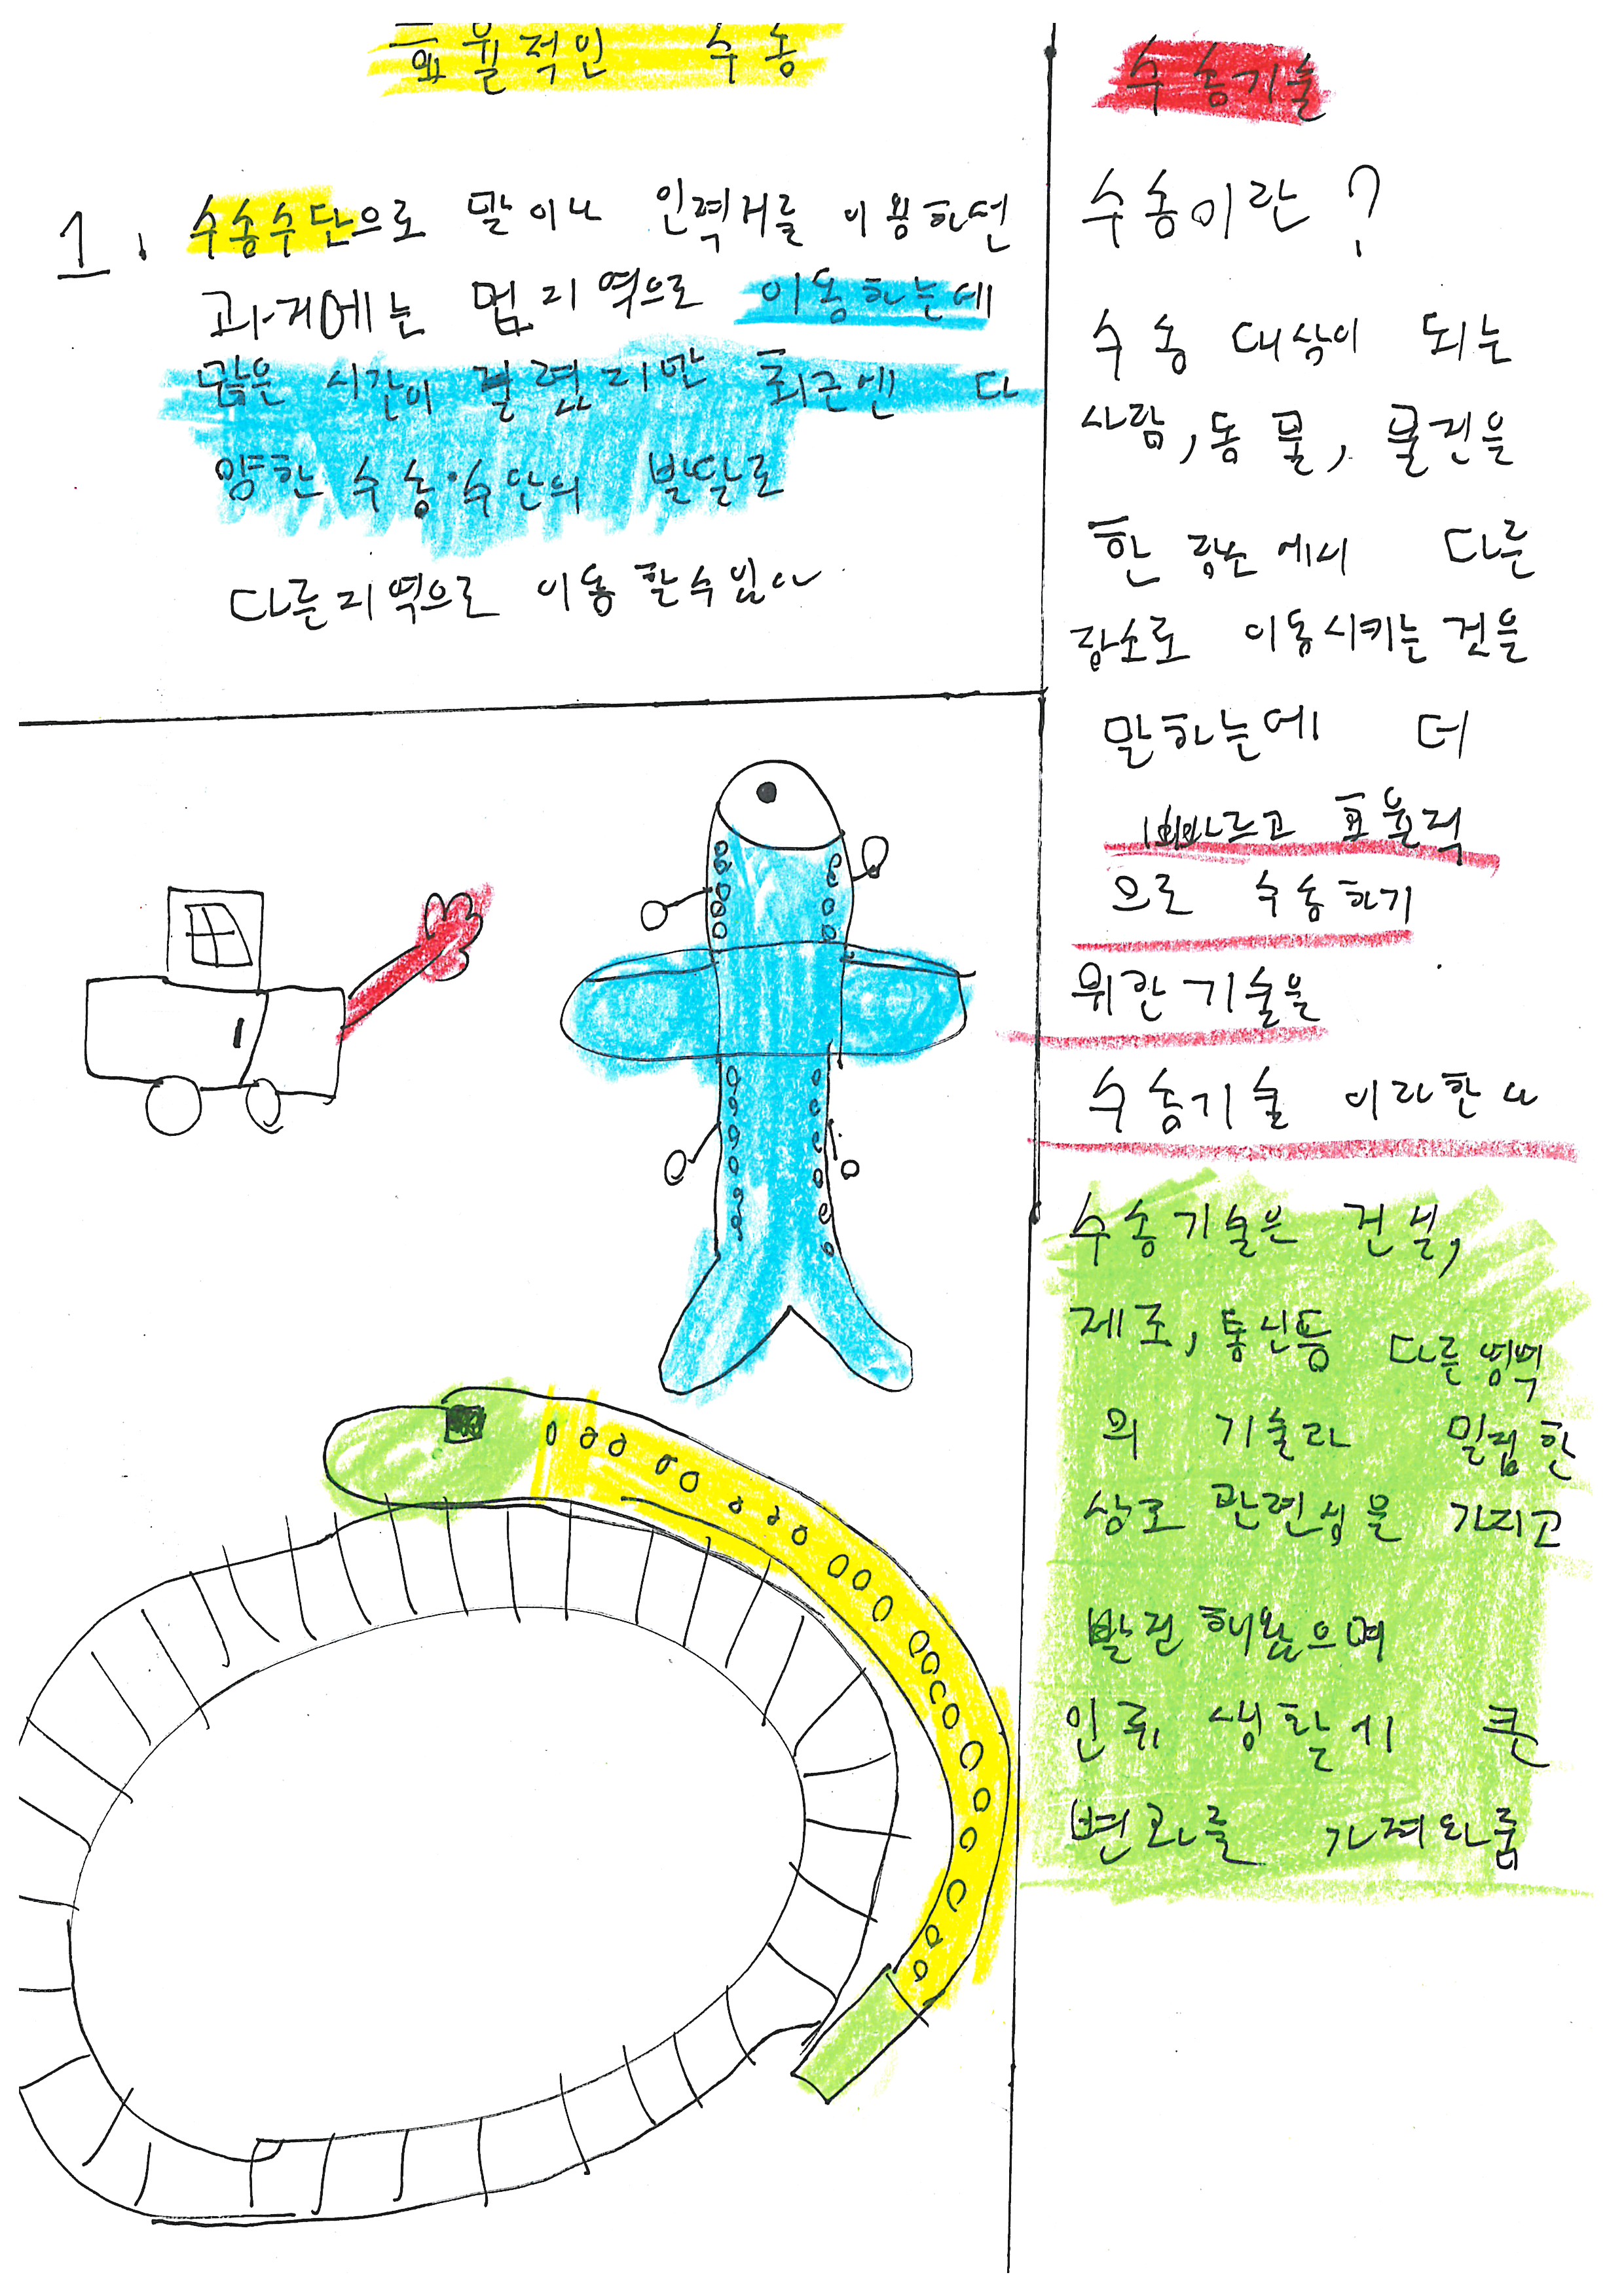 효율적인 수송
1. 수송수단으로 말이나 인력거를 이용하던
과거에는 먼 지역으로 이동하는데
많은 시간이 걸렸지만 최근엔 다
양한 수송·수단의 발달로
다른지역으로 이동 할수있다
수송기술
수송이란?
수송 대상이 되는
사람, 동물, 물건을
한 장소에서 다른
장소로 이동시키는 것을
말하는데 더
빠르고 효율적
으로 수송하기
위한 기술을
수송기술 이라한다
수송기술은 건설,
제조, 통신등 다른영역
의 기술과 밀접한
상호 관련성을 가지고
발전해왔으며
인류 생활에 큰
변화를 가져다줌